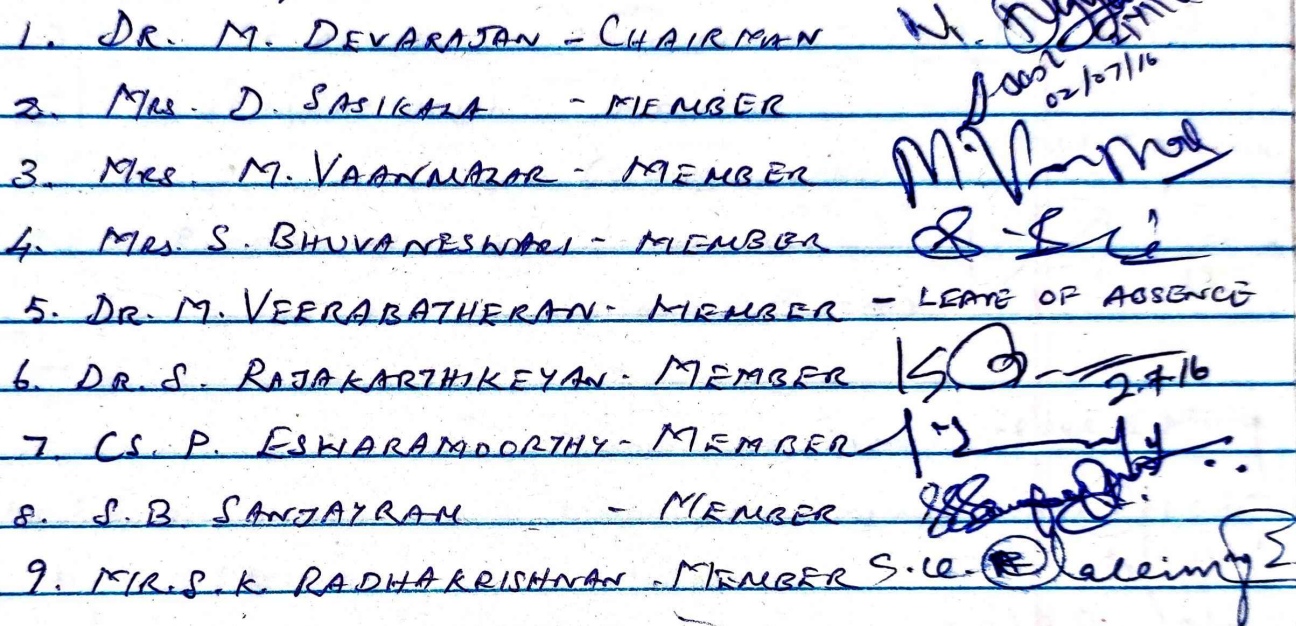 1. DR. M. DEVARAJAN - CHAIRMAN
2. MRS. D. SASIKALA - MEMBER 02/07/16
3. MRS. M. VAANMALAR - MEMBER
4. MRS. S. BHUVANESWARI - MEMBER
5. DR. M. VEERABATHERAN - MEMBER - LEAVE OF ABSENCE
6. DR. S. RAJAKARTHIKEYAN - MEMBER 2.7.16
7. CS. P. ESWARAMOORTHY - MEMBER
8. S.B. SANJAYRAM - MEMBER
9. MR. S. K. RADHAKRISHNAN - MEMBER